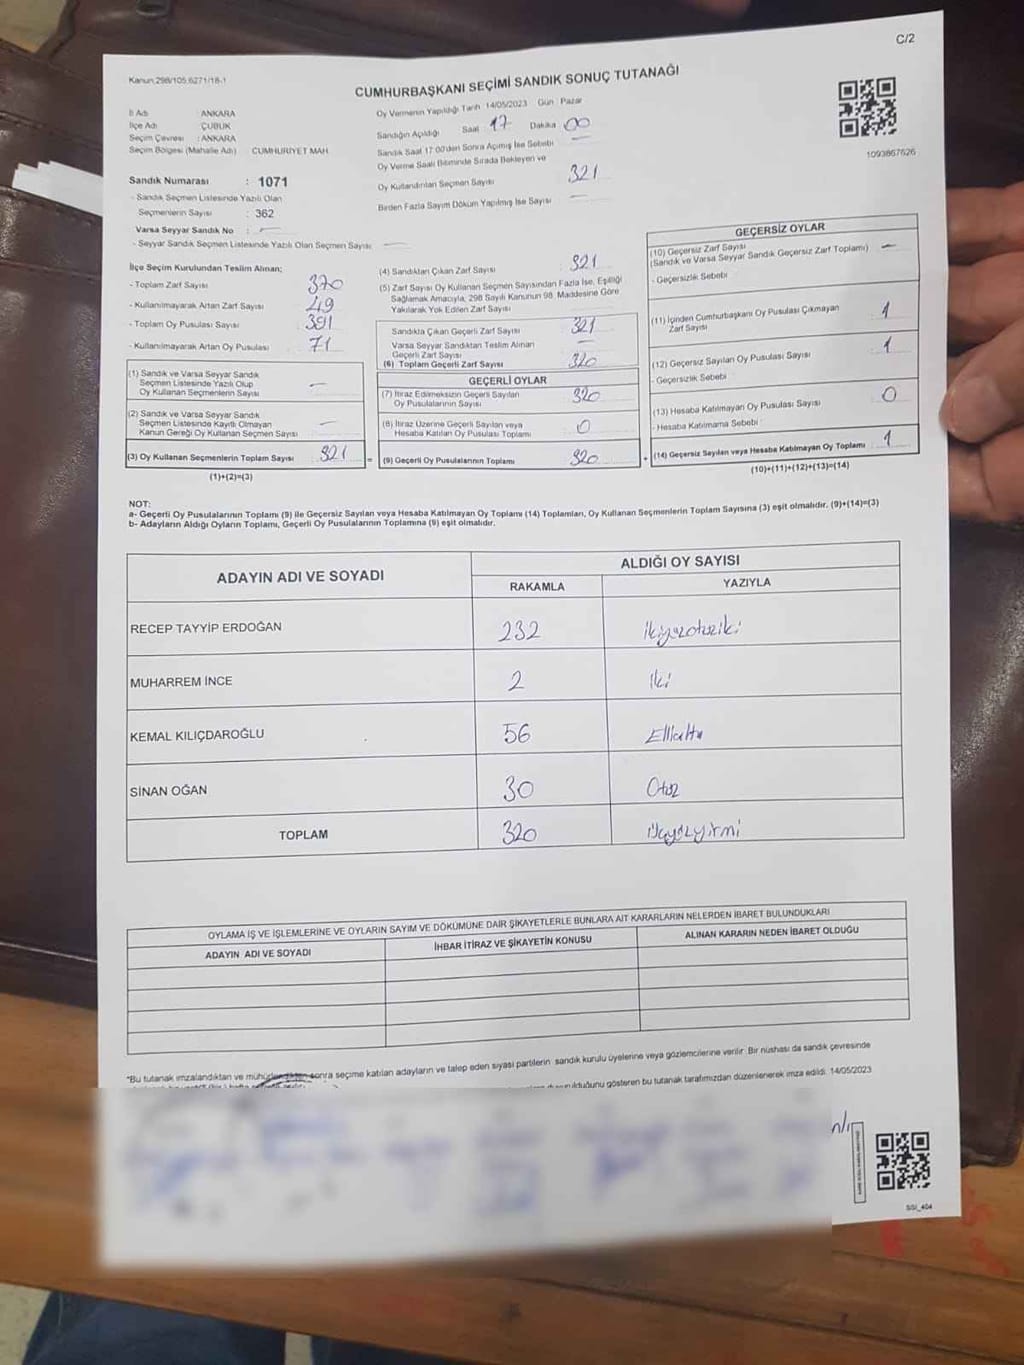 C/2
Kanun,298/105,6271/18-1
CUMHURBAŞKANI SEÇİMİ SANDIK SONUÇ TUTANAĞI
İl Adı : ANKARA
İlçe Adı : ÇUBUK
Seçim Çevresi : ANKARA
Seçim Bölgesi (Mahalle Adı) CUMHURİYET MAH.
Oy Vermenin Yapıldığı Tarih 14/05/2023 Gün Pazar
Sandığın Açıldığı Saat 17 Dakika 00
Sandık Saat 17:00'den Sonra Açımış İse Sebebi
Oy Verme Saati Bitiminde Sırada Bekleyen ve
Oy Kullandırılan Seçmen Sayısı 321
Birden Fazla Sayım Döküm Yapılmış İse Sayısı —
1093867626
Sandık Numarası : 1071
- Sandık Seçmen Listesinde Yazılı Olan
Seçmenlerin Sayısı : 362
Varsa Seyyar Sandık No : —
- Seyyar Sandık Seçmen Listesinde Yazılı Olan Seçmen Sayısı: —
İlçe Seçim Kurulundan Teslim Alınan;
- Toplam Zarf Sayısı 370
- Kullanılmayarak Artan Zarf Sayısı 49
- Toplam Oy Pusulası Sayısı 391
- Kullanılmayarak Artan Oy Pusulası 71
(1) Sandık ve Varsa Seyyar Sandık
Seçmen Listesinde Yazılı Olup
Oy Kullanan Seçmenlerin Sayısı —
(2) Sandık ve Varsa Seyyar Sandık
Seçmen Listesinde Kayıtlı Olmayan
Kanun Gereği Oy Kullanan Seçmen Sayısı —
(3) Oy Kullanan Seçmenlerin Toplam Sayısı 321 =
(1)+(2)=(3)
(4) Sandıktan Çıkan Zarf Sayısı 321
(5) Zarf Sayısı Oy Kullanan Seçmen Sayısından Fazla İse, Eşitliği
Sağlamak Amacıyla, 298 Sayılı Kanunun 98. Maddesine Göre
Yakılarak Yok Edilen Zarf Sayısı
Sandıkta Çıkan Geçerli Zarf Sayısı 321
Varsa Seyyar Sandıktan Teslim Alınan
Geçerli Zarf Sayısı —
(6) Toplam Geçerli Zarf Sayısı 320
GEÇERLİ OYLAR
(7) İtiraz Edilmeksizin Geçerli Sayılan
Oy Pusulalarının Sayısı 320
(8) İtiraz Üzerine Geçerli Sayılan veya
Hesaba Katılan Oy Pusulası Toplamı 0
(9) Geçerli Oy Pusulalarının Toplamı 320 +
GEÇERSİZ OYLAR
(10) Geçersiz Zarf Sayısı —
(Sandık ve Varsa Seyyar Sandık Geçersiz Zarf Toplamı)
- Geçersizlik Sebebi
(11) İçinden Cumhurbaşkanı Oy Pusulası Çıkmayan
Zarf Sayısı 1
(12) Geçersiz Sayılan Oy Pusulası Sayısı 1
- Geçersizlik Sebebi
(13) Hesaba Katılmayan Oy Pusulası Sayısı 0
- Hesaba Katılmama Sebebi
(14) Geçersiz Sayılan veya Hesaba Katılmayan Oy Toplamı 1
(10)+(11)+(12)+(13)=(14)
NOT:
a- Geçerli Oy Pusulalarının Toplamı (9) ile Geçersiz Sayılan veya Hesaba Katılmayan Oy Toplamı (14) Toplamları, Oy Kullanan Seçmenlerin Toplam Sayısına (3) eşit olmalıdır. (9)+(14)=(3)
b- Adayların Aldığı Oyların Toplamı, Geçerli Oy Pusulalarının Toplamına (9) eşit olmalıdır.
ADAYIN ADI VE SOYADI
ALDIĞI OY SAYISI
RAKAMLA YAZIYLA
RECEP TAYYİP ERDOĞAN 232 ikiyüzotuziki
MUHARREM İNCE 2 iki
KEMAL KILIÇDAROĞLU 56 Ellialtı
SİNAN OĞAN 30 Otuz
TOPLAM 320 üçyüzyirmi
OYLAMA İŞ VE İŞLEMLERİNE VE OYLARIN SAYIM VE DÖKÜMÜNE DAİR ŞİKAYETLERLE BUNLARA AİT KARARLARIN NELERDEN İBARET BULUNDUKLARI
ADAYIN ADI VE SOYADI İHBAR İTİRAZ VE ŞİKAYETİN KONUSU ALINAN KARARIN NEDEN İBARET OLDUĞU
*Bu tutanak imzalandıktan ve mühürlendikten sonra seçime katılan adayların ve talep eden siyasi partilerin sandık kurulu üyelerine veya gözlemcilerine verilir. Bir nüshası da sandık çevresinde
gösteren bu tutanak tarafımızdan düzenlenerek imza edildi. 14/05/2023
SSI_404